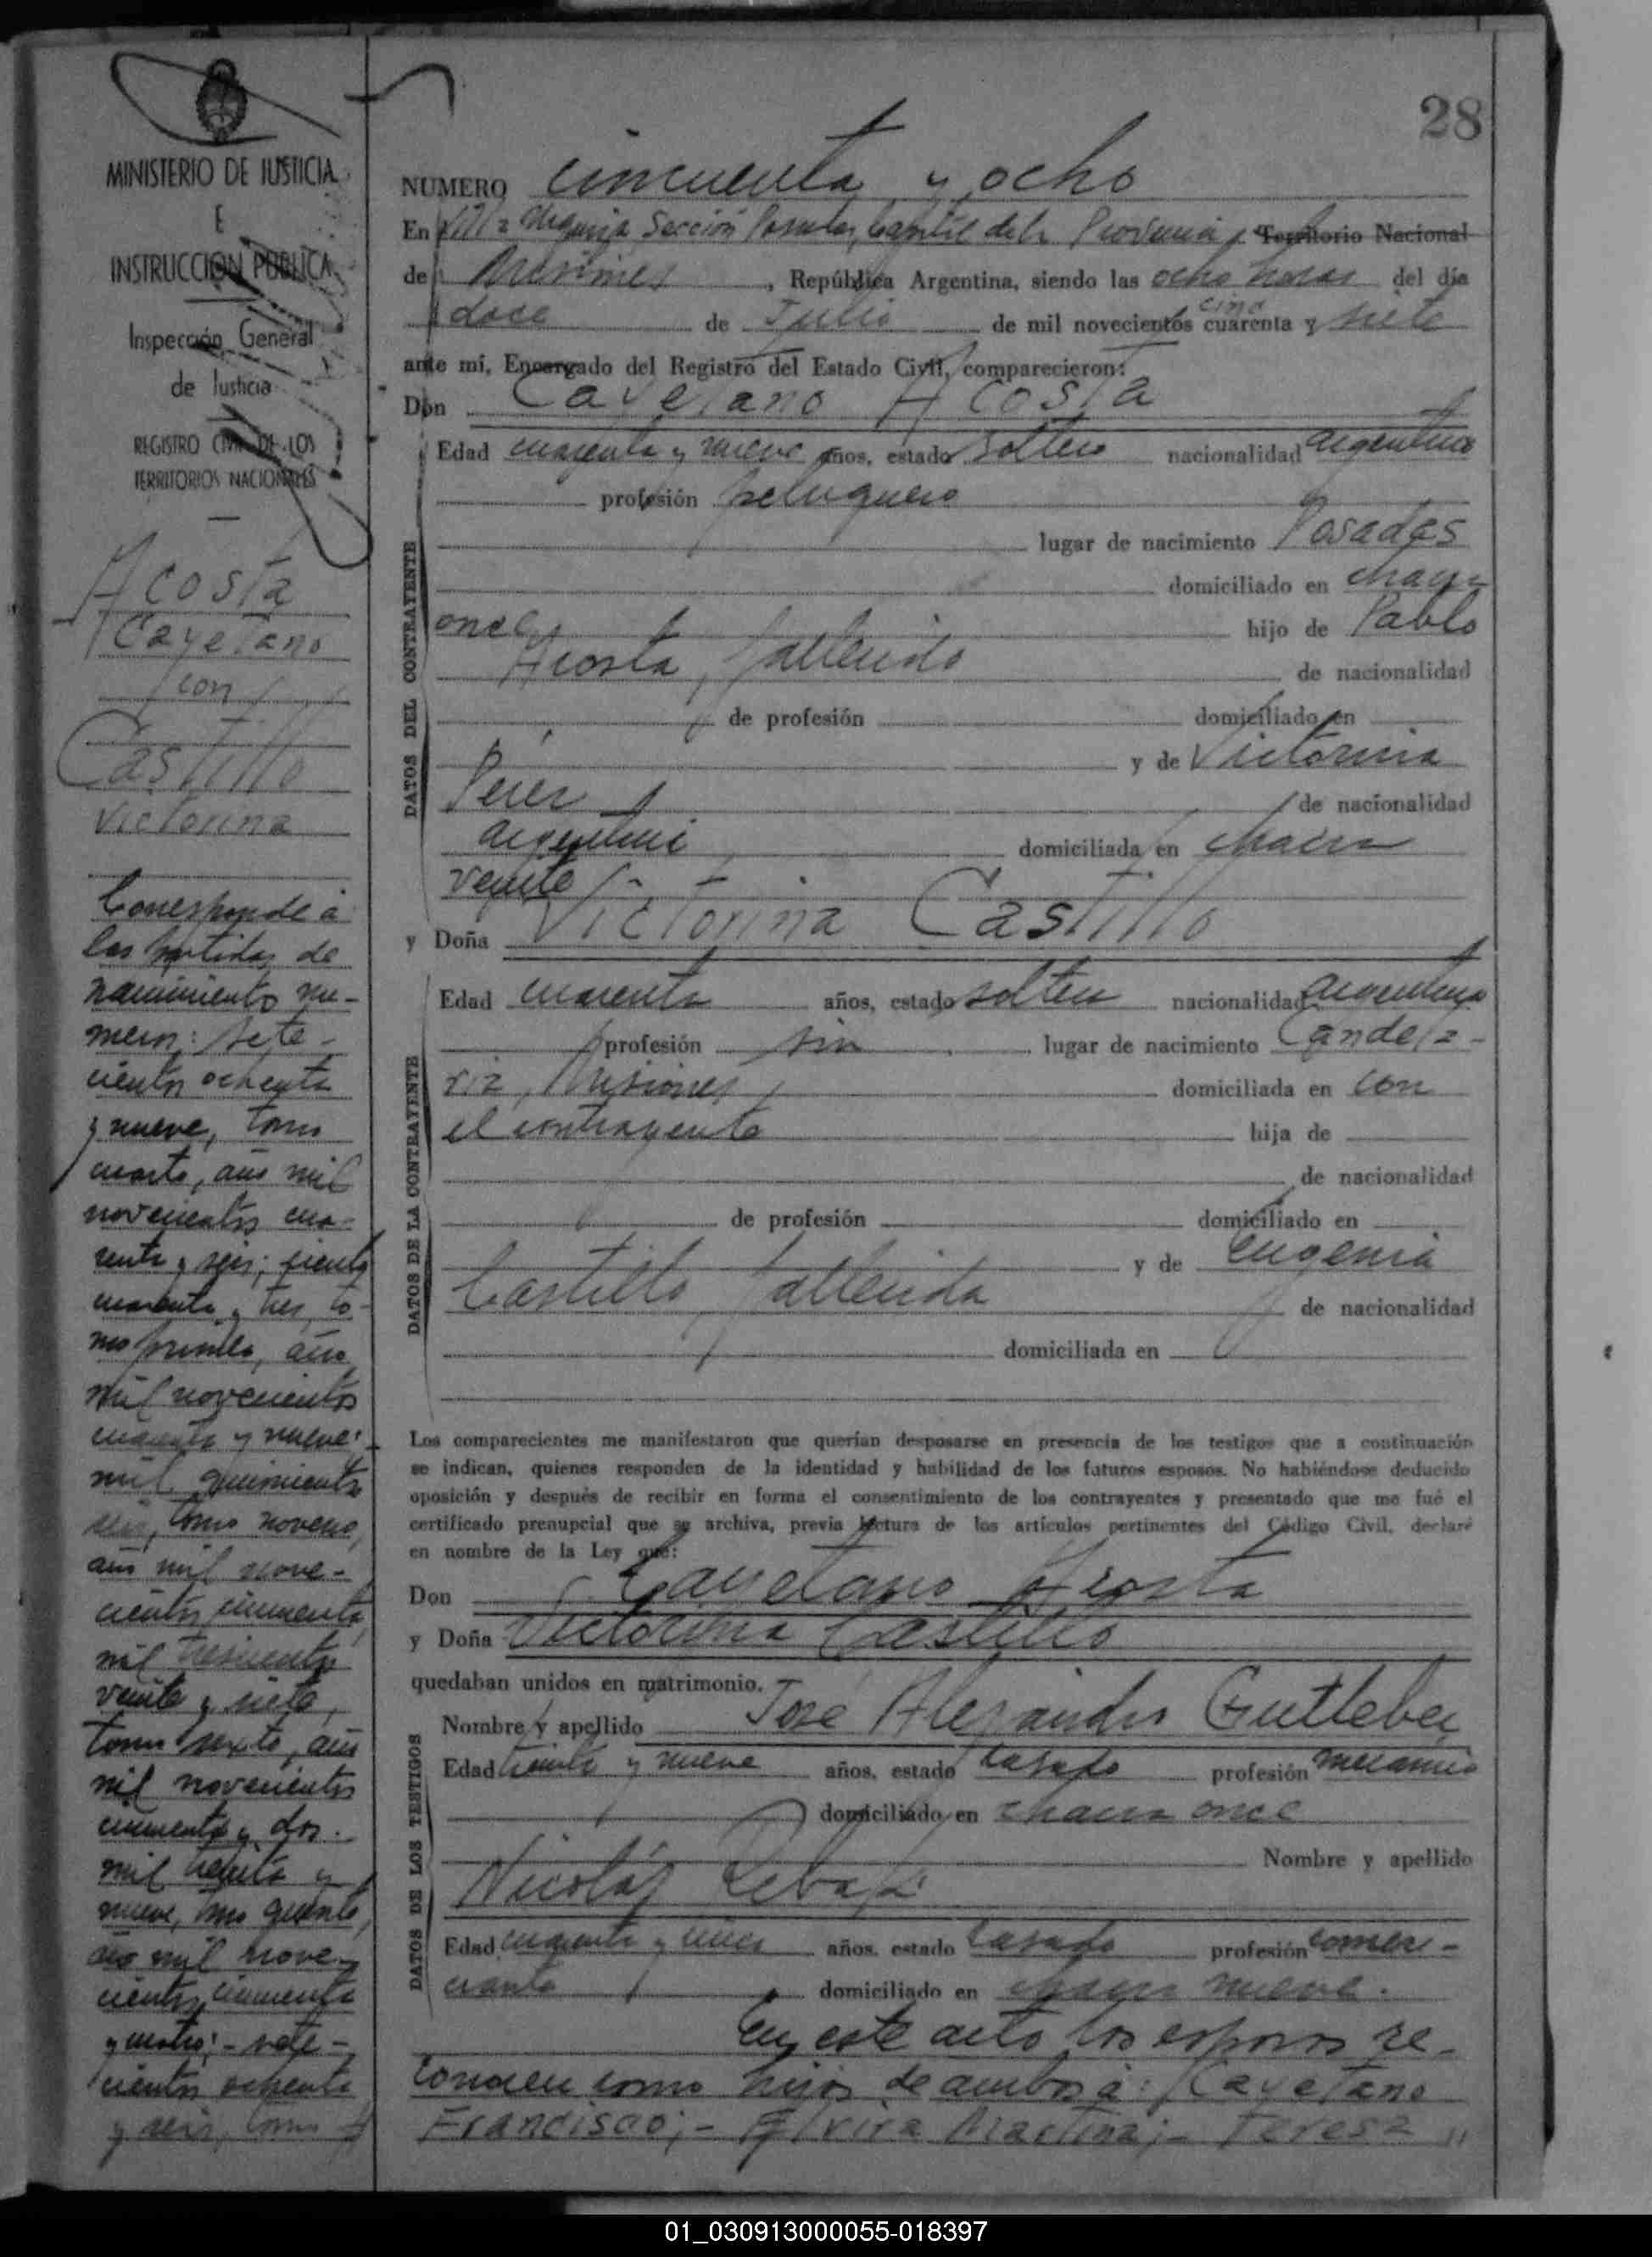 28
MINISTERIO DE JUSTICIA
E
INSTRUCCION PUBLICA
Inspección General
de Justicia
REGISTRO CIVIL DE LOS
TERRITORIOS NACIONALES
Acosta
Cayetano
con
Castillo
Victorina
Corresponde a
las partidas de
nacimiento nu-
mero: sete-
cientos ochenta
y nueve, tomo
cuarto, año mil
novecientos cua-
renta y seis; ciento
cuarenta y tres, to-
mo primero, año
mil novecientos
cuarenta y nueve;
mil quinientos
seis, tomo noveno,
año mil nove-
cientos cincuenta,
mil trescientos
veinte y siete,
tomo sexto, año
mil novecientos
cincuenta y dos.
mil treinta y
nueve, tomo quinto,
año mil nove-
cientos cincuenta
y cuatro; - sete-
cientos ochenta
y seis, tomo
NUMERO cincuenta y ocho
En Villa Urquiza Sección Posadas, Capital de la Provincia Territorio Nacional
de Misiones, República Argentina, siendo las ocho horas del día
doce de Julio de mil novecientos cinc cuarenta y siete
ante mí, Encargado del Registro del Estado Civil, comparecieron:
Don Cayetano Acosta
DATOS DEL CONTRAYENTE
Edad cuarenta y nueve años, estado soltero nacionalidad argentino
profesión peluquero
lugar de nacimiento Posadas
domiciliado en chacra
once hijo de Pablo
Acosta, fallecido de nacionalidad
de profesión domiciliado en
y de Victorina
Perez de nacionalidad
argentina domiciliada en chacra
veinte
y Doña Victorina Castillo
DATOS DE LA CONTRAYENTE
Edad cuarenta años, estado soltera nacionalidad argentina
profesión sin lugar de nacimiento Candela-
ria, Misiones domiciliada en con
el contrayente hija de
de nacionalidad
de profesión domiciliado en
y de Eugenia
Castillo, fallecida de nacionalidad
domiciliada en
Los comparecientes me manifestaron que querían desposarse en presencia de los testigos que a continuación
se indican, quienes responden de la identidad y habilidad de los futuros esposos. No habiéndose deducido
oposición y después de recibir en forma el consentimiento de los contrayentes y presentado que me fué el
certificado prenupcial que se archiva, previa lectura de los artículos pertinentes del Código Civil, declaré
en nombre de la Ley que:
Don Cayetano Acosta
y Doña Victorina Castillo
quedaban unidos en matrimonio.
DATOS DE LOS TESTIGOS
Nombre y apellido José Alejandro Gutleber
Edad treinta y nueve años, estado casado profesión mecanico
domiciliado en chacra once
Nombre y apellido
Nicolás
Edad cuarenta y cinco años, estado casado profesión comer-
ciante domiciliado en chacra nueve.
En este acto los esposos re-
conocen como hijos de ambos a: Cayetano
Francisco; - Elvira Martina; - Teresa
01_030913000055-018397